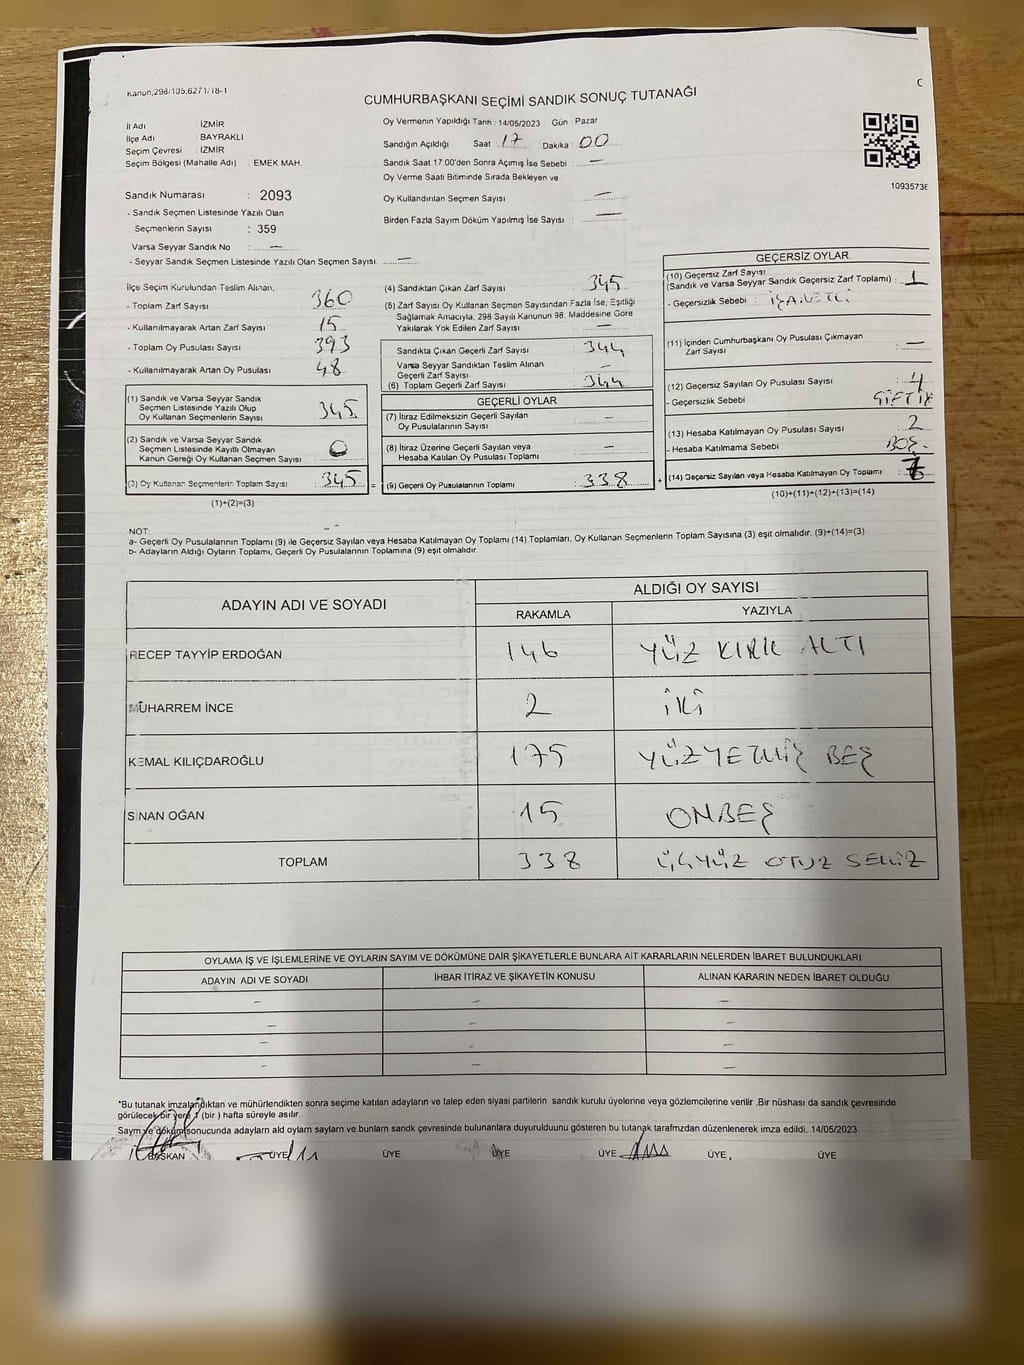 Kanun,298/105,6271/18-1
CUMHURBAŞKANI SEÇİMİ SANDIK SONUÇ TUTANAĞI
İl Adı İZMİR
İlçe Adı : BAYRAKLI
Seçim Çevresi : İZMİR
Seçim Bölgesi (Mahalle Adı) : EMEK MAH.
Oy Vermenin Yapıldığı Tarih : 14/05/2023 Gün : Pazar
Sandığın Açıldığı Saat : 17 Dakika : 00
Sandık Saat 17:00'den Sonra Açımış İse Sebebi : —
Oy Verme Saati Bitiminde Sırada Bekleyen ve
Oy Kullandırılan Seçmen Sayısı : —
Birden Fazla Sayım Döküm Yapılmış İse Sayısı : —
1093573
Sandık Numarası : 2093
- Sandık Seçmen Listesinde Yazılı Olan
Seçmenlerin Sayısı : 359
Varsa Seyyar Sandık No : —
- Seyyar Sandık Seçmen Listesinde Yazılı Olan Seçmen Sayısı. —
İlçe Seçim Kurulundan Teslim Alınan,
- Toplam Zarf Sayısı 360
- Kullanılmayarak Artan Zarf Sayısı 15
- Toplam Oy Pusulası Sayısı 393
- Kullanılmayarak Artan Oy Pusulası 48
(1) Sandık ve Varsa Seyyar Sandık
Seçmen Listesinde Yazılı Olup
Oy Kullanan Seçmenlerin Sayısı : 345
(2) Sandık ve Varsa Seyyar Sandık
Seçmen Listesinde Kayıtlı Olmayan
Kanun Gereği Oy Kullanan Seçmen Sayısı : 0
(3) Oy Kullanan Seçmenlerin Toplam Sayısı : 345
(1)+(2)=(3)
(4) Sandıktan Çıkan Zarf Sayısı : 345
(5) Zarf Sayısı Oy Kullanan Seçmen Sayısından Fazla İse, Eşitliği
Sağlamak Amacıyla, 298 Sayılı Kanunun 98. Maddesine Göre
Yakılarak Yok Edilen Zarf Sayısı : —
Sandıkta Çıkan Geçerli Zarf Sayısı : 344
Varsa Seyyar Sandıktan Teslim Alınan
Geçerli Zarf Sayısı : —
(6) Toplam Geçerli Zarf Sayısı : 344
GEÇERLİ OYLAR
(7) İtiraz Edilmeksizin Geçerli Sayılan
Oy Pusulalarının Sayısı : —
(8) İtiraz Üzerine Geçerli Sayılan veya
Hesaba Katılan Oy Pusulası Toplamı : —
= (9) Geçerli Oy Pusulalarının Toplamı : 338 +
GEÇERSİZ OYLAR
(10) Geçersiz Zarf Sayısı
(Sandık ve Varsa Seyyar Sandık Geçersiz Zarf Toplamı) : 1
- Geçersizlik Sebebi : İŞARETLİ
(11) İçinden Cumhurbaşkanı Oy Pusulası Çıkmayan
Zarf Sayısı : —
(12) Geçersiz Sayılan Oy Pusulası Sayısı : 4
- Geçersizlik Sebebi ÇİFTLİ
(13) Hesaba Katılmayan Oy Pusulası Sayısı : 2
- Hesaba Katılmama Sebebi : BOŞ
(14) Geçersiz Sayılan veya Hesaba Katılmayan Oy Toplamı : 7
(10)+(11)+(12)+(13)=(14)
NOT:
a- Geçerli Oy Pusulalarının Toplamı (9) ile Geçersiz Sayılan veya Hesaba Katılmayan Oy Toplamı (14) Toplamları, Oy Kullanan Seçmenlerin Toplam Sayısına (3) eşit olmalıdır. (9)+(14)=(3)
b- Adayların Aldığı Oyların Toplamı, Geçerli Oy Pusulalarının Toplamına (9) eşit olmalıdır.
ADAYIN ADI VE SOYADI ALDIĞI OY SAYISI
RAKAMLA YAZIYLA
RECEP TAYYİP ERDOĞAN 146 YÜZ KIRK ALTI
MUHARREM İNCE 2 İKİ
KEMAL KILIÇDAROĞLU 175 YÜZYETMİŞ BEŞ
SİNAN OĞAN 15 ONBEŞ
TOPLAM 338 ÜÇYÜZ OTUZ SEKİZ
OYLAMA İŞ VE İŞLEMLERİNE VE OYLARIN SAYIM VE DÖKÜMÜNE DAİR ŞİKAYETLERLE BUNLARA AİT KARARLARIN NELERDEN İBARET BULUNDUKLARI
ADAYIN ADI VE SOYADI İHBAR İTİRAZ VE ŞİKAYETİN KONUSU ALINAN KARARIN NEDEN İBARET OLDUĞU
— — —
— — —
— — —
— — —
*Bu tutanak imzalandıktan ve mühürlendikten sonra seçime katılan adayların ve talep eden siyasi partilerin sandık kurulu üyelerine veya gözlemcilerine verilir .Bir nüshası da sandık çevresinde
görülecek bir yere 1 (bir ) hafta süreyle asılır.
Sayım ve döküm sonucunda adayların ald oyların sayları ve bunların sandk çevresinde bulunanlara duyurulduunu gösteren bu tutanak tarafmzdan düzenlenerek imza edildi. 14/05/2023
BAŞKAN ÜYE ÜYE ÜYE ÜYE ÜYE ÜYE